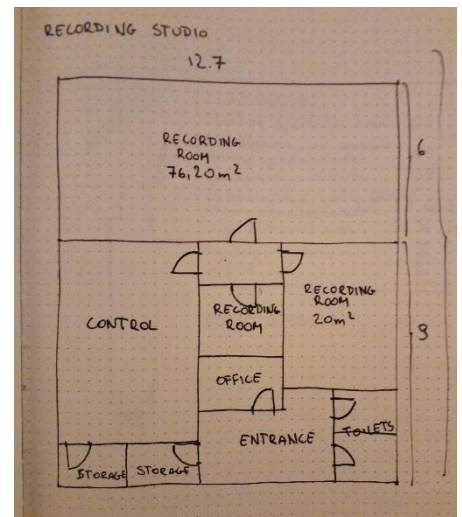 RECORDING STUDIO
12.7
RECORDING
ROOM
76,20m²
6
RECORDING
ROOM
20m²
RECORDING
ROOM
CONTROL
9
OFFICE
ENTRANCE
TOILETS
STORAGE
STORAGE